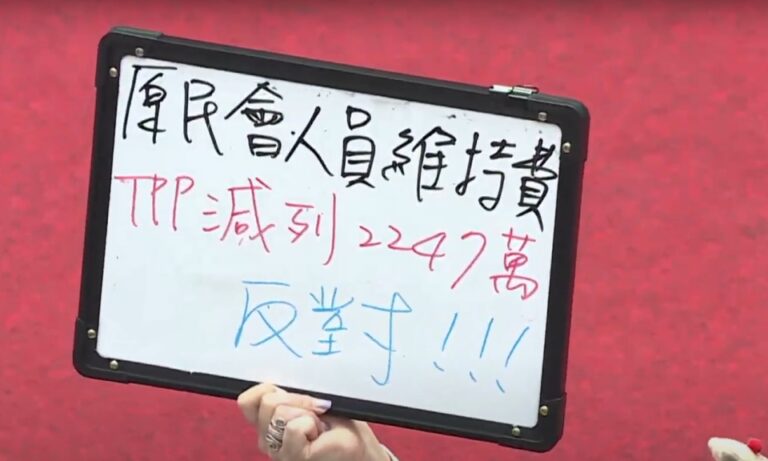 原民會人員維持費
TPP減列2247萬
反對!!!